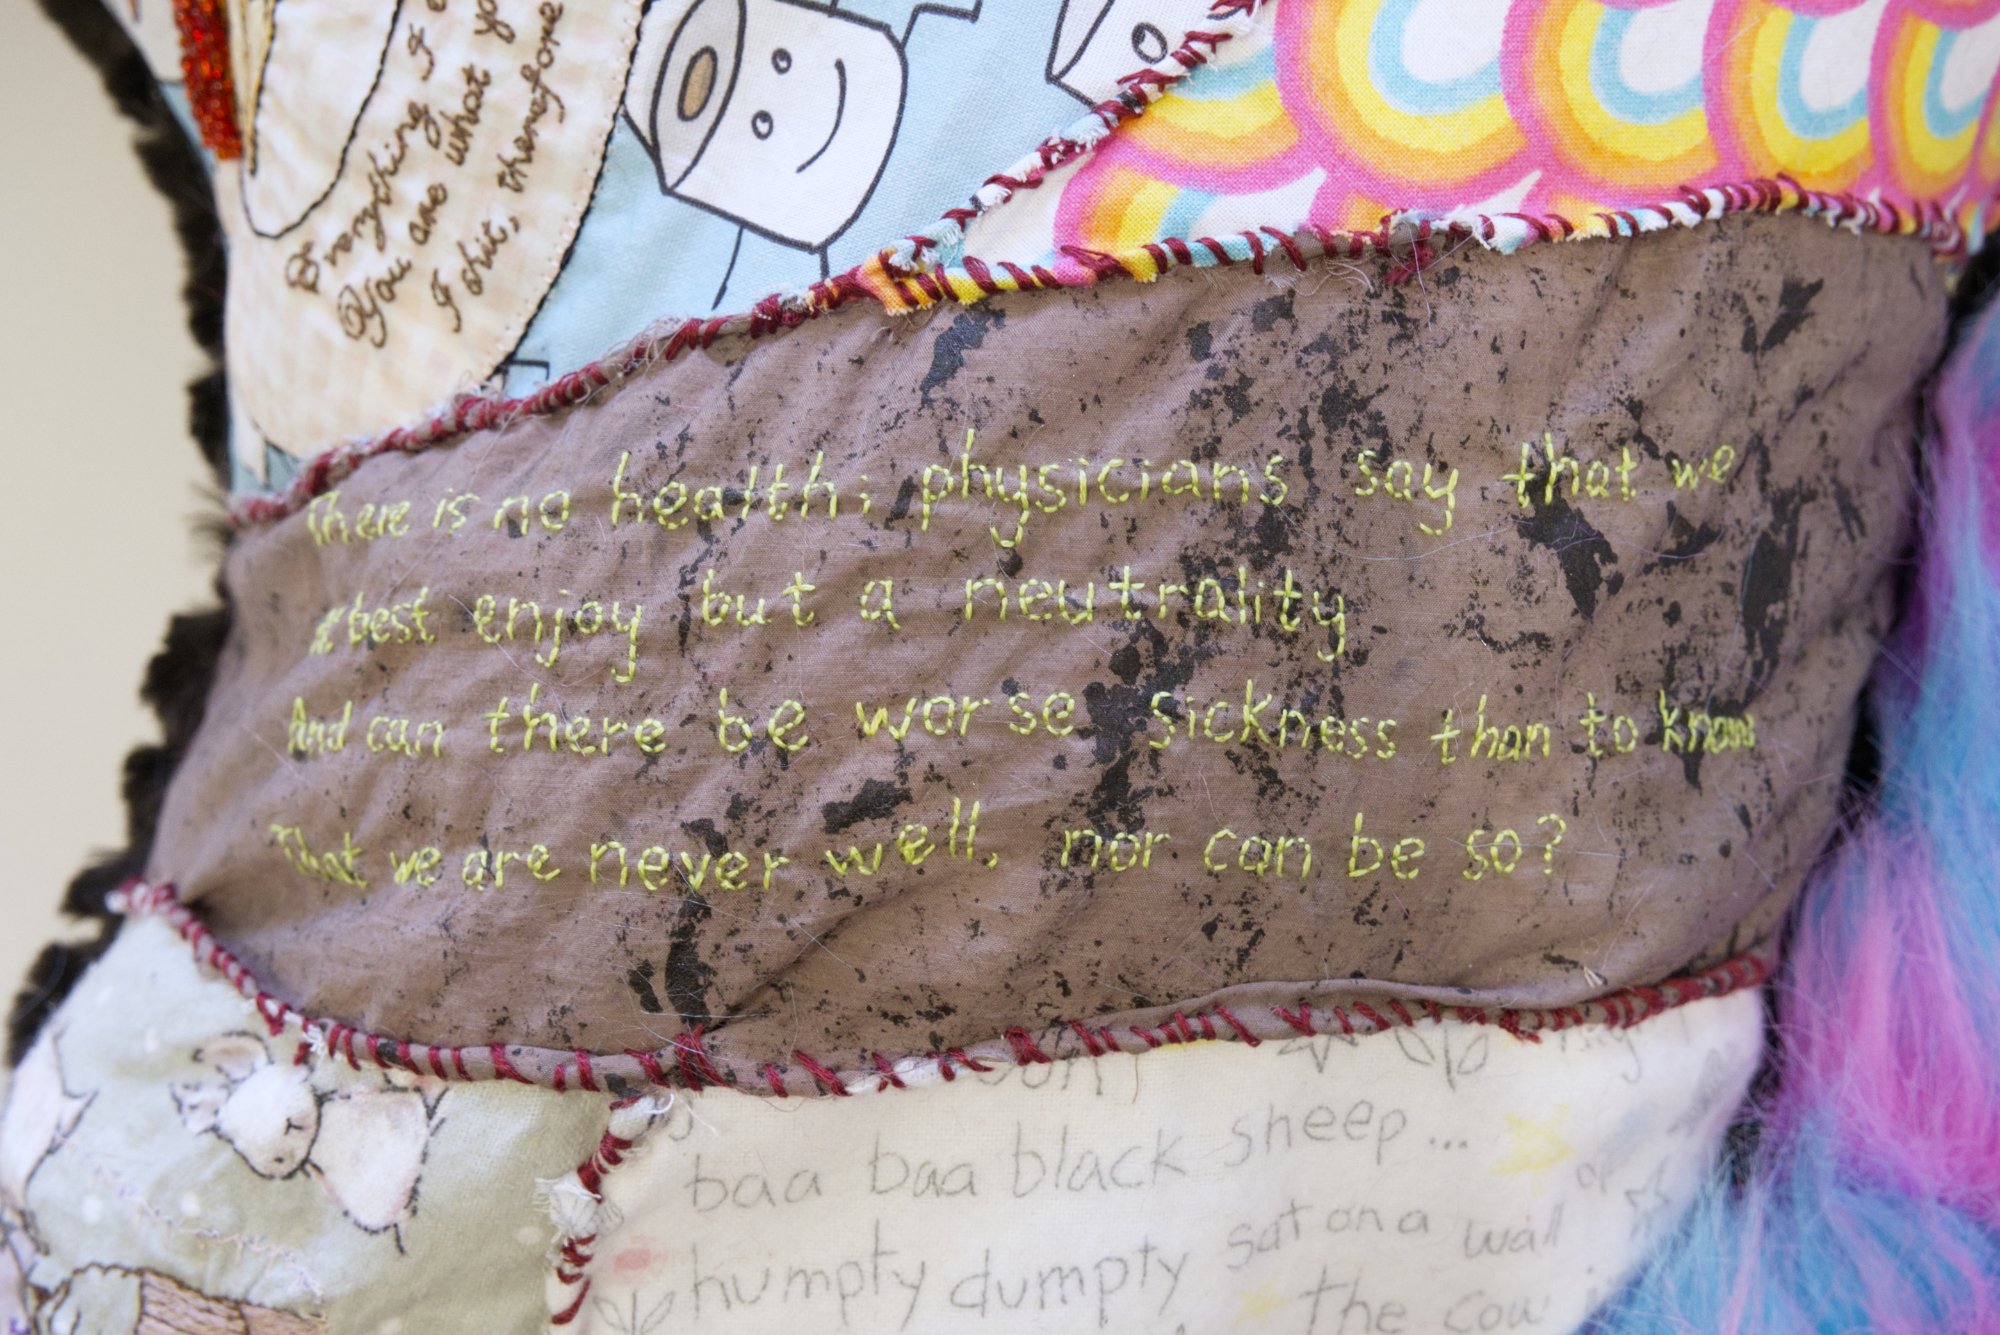 Everything I e
You are what yo
I shit, therefore
There is no health; physicians say that we
at best enjoy but a neutrality
And can there be worse sickness than to know
That we are never well, nor can be so?
baa baa black sheep...
humpty dumpty sat on a wall
The cow